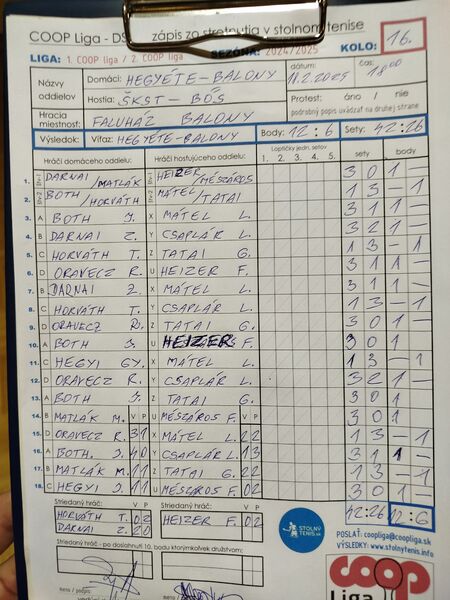 COOP Liga - DS zápis zo stretnutia v stolnom tenise
LIGA: 1. COOP liga / 2. COOP liga SEZÓNA: 2024/2025 KOLO: 16.
Názvy oddielov Domáci: HEGYÉTE-BALONY dátum: 11.2.2025 čas: 18:00
Hostia: ŠKST - BŐS Protest: áno / nie
Hracia miestnosť: FALUHÁZ BALONY podrobný popis uvádzať na druhej strane
Výsledok: Víťaz: HEGYÉTE-BALONY Body: 12:6 Sety: 42:26
Hráči domáceho oddielu: Hráči hosťujúceho oddielu: Loptičky jedn. setov: 1. 2. 3. 4. 5. sety body
1. DARNAI/MATLÁK HEIZER/MÉSZÁROS 3 0 1 -
2. BOTH/HORVÁTH MÁTEL/TATAI 1 3 - 1
3. A BOTH J. X MÁTEL L. 3 1 1 -
4. B DARNAI Z. Y CSAPLÁR L. 3 2 1 -
5. C HORVÁTH T. Z TATAI G. 1 3 - 1
6. D ORAVECZ R. U HEIZER F. 3 1 1 -
7. B DARNAI Z. X MÁTEL L. 3 1 1 -
8. C HORVÁTH T. Y CSAPLÁR L. 1 3 - 1
9. D ORAVECZ R. Z TATAI G. 3 0 1 -
10. A BOTH J. U HEIZER F. 3 0 1
11. C HEGYI GY. X MÁTEL L. 1 3 - 1
12. D ORAVECZ R. Y CSAPLÁR L. 3 2 1 -
13. A BOTH J. Z TATAI G. 3 0 1
14. B MATLÁK M. V P U MÉSZÁROS F. V P 3 0 1
15. D ORAVECZ R. 3 1 X MÁTEL L. 2 2 1 3 - 1
16. A BOTH. J. 4 0 Y CSAPLÁR L. 1 3 3 1 1 -
17. B MATLÁK M. 1 1 Z TATAI G. 2 2 1 3 - 1
18. C HEGYI J. 1 1 U MÉSZÁROS F. 0 2 3 0 1 -
Striedaný hráč: V P Striedaný hráč: V P 42:26 12:6
HORVÁTH T. 0 2 HEIZER F. 0 2
DARNAI Z. 2 0
STOLNÝ TENIS.info
POSLAŤ: coopliga@coopliga.sk
VÝSLEDKY: www.stolnytenis.info
Striedaný hráč - po dosiahnutí 10. bodu ktorýmkoľvek družstvom:
meno / podpis
meno /
COOP
Liga